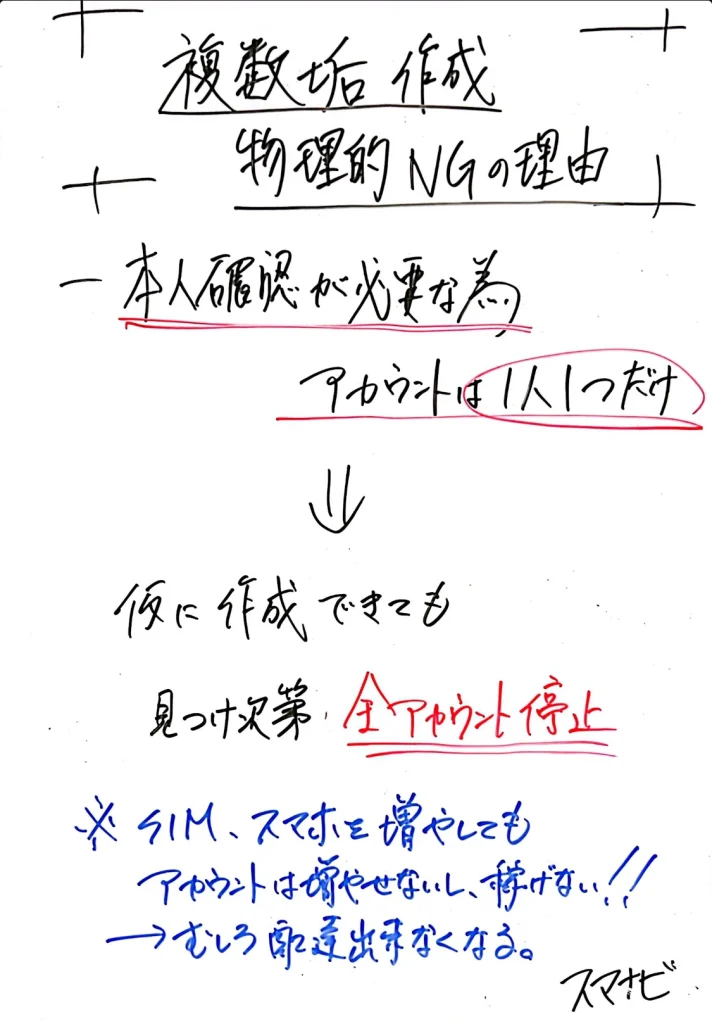 複数垢 作成
物理的NGの理由
ー本人確認が必要な為
アカウントは1人1つだけ
⇓
仮に作成できても
見つけ次第、全アカウント停止
※SIM、スマホを増やしても
アカウントは増やせないし、稼げない!!
→むしろ配達出来なくなる。
スマナビ